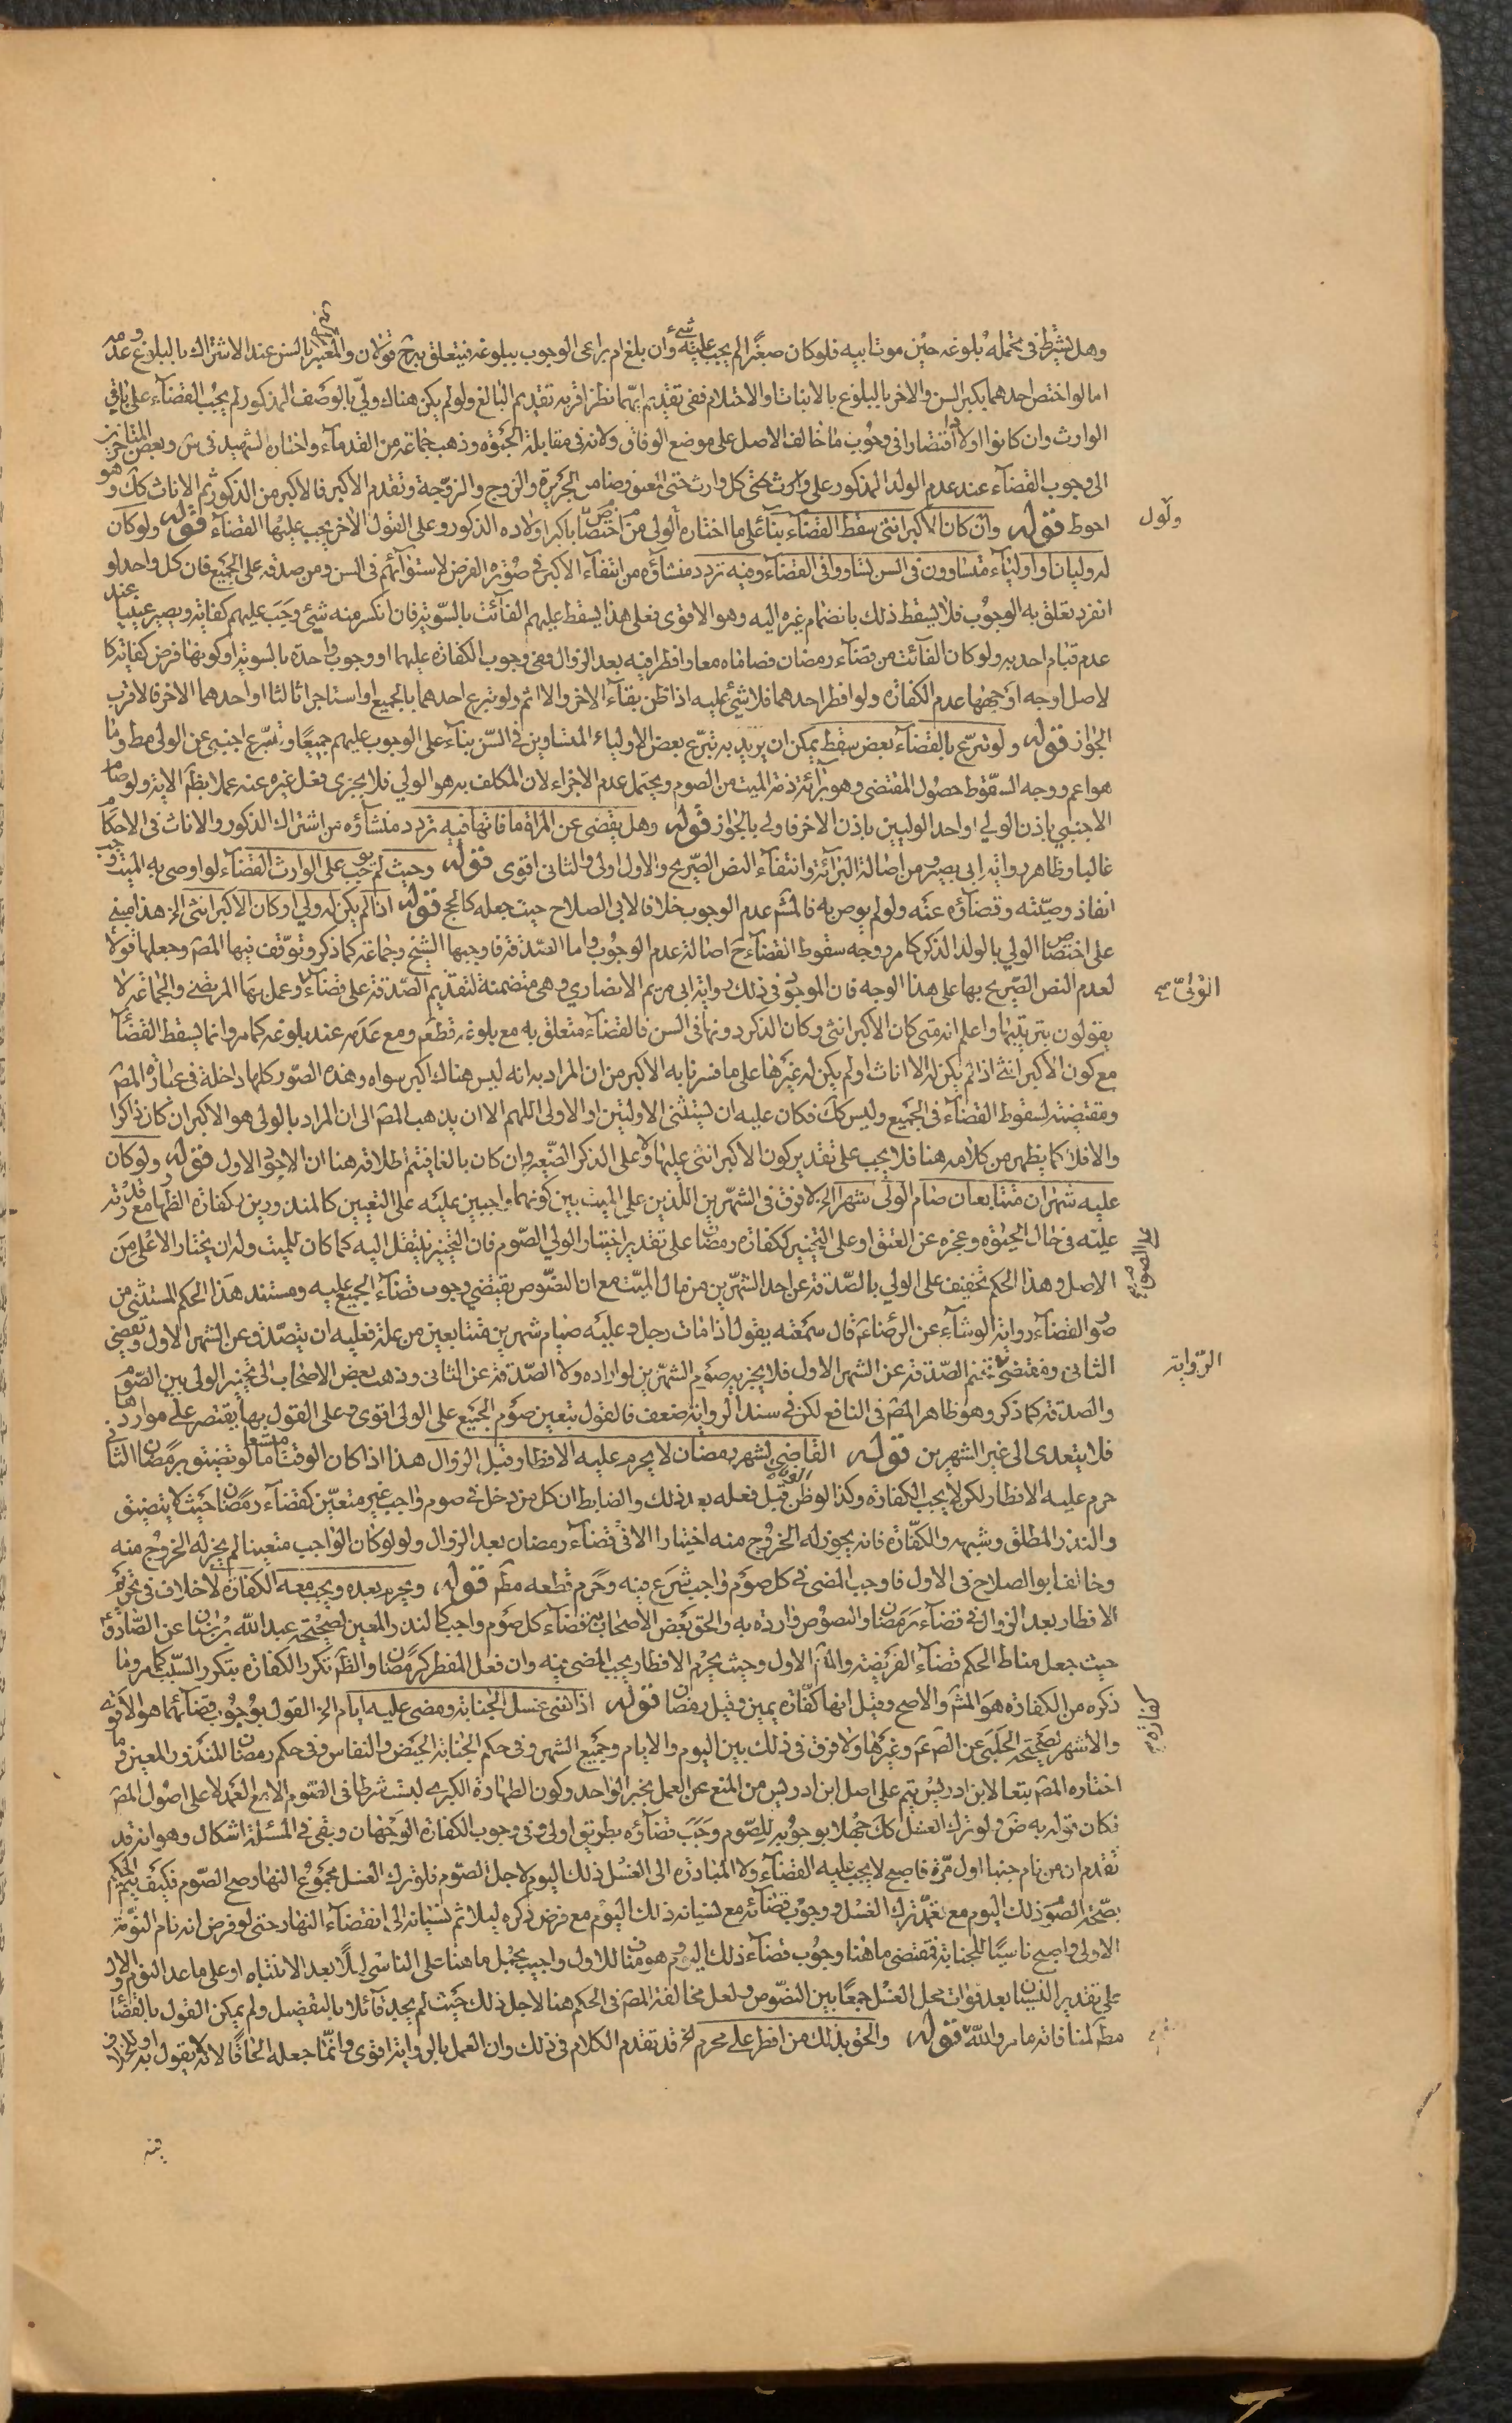 وهل يشترط في تحمله بلوغه حين موت ابيه فلو كان صغيرا لم يجب عليه شيء وان بلغ ام يراعى الوجوب ببلوغه فيتعلق به ح قولان والمعتبر بالسن عند الاشتراك بالبلوغ وعدمه
اما لو اختص احدهما بكبر السن والاخر بالبلوغ بالانبات او الاحتلام ففي تقديم ايهما نظر اقربه تقديم البالغ ولو لم يكن هناك ولي بالوصف المذكور لم يجب القضاء على باقي
الوارث وان كانوا اولادا اقتصارا في وجوب ما خالف الاصل على موضع الوفاق ولانه في مقابلة الحبوة وذهب جماعة من القدماء واختاره الشهيد في س وبعض المتاخرين
الى وجوب القضاء عند عدم الولد المذكور على وارث حتى كل وارث حتى المعتق وضامن الجريرة والزوج والزوجة وتقدم الاكبر فالاكبر من الذكور ثم الاناث كك وهو
احوط قوله وان كان الاكبر انثى سقط القضاء بناء على ما اختاره اولى من اختصاص باكبر اولاده الذكور وعلى القول الاخر يجب عليها القضاء قوله ولو كان
له وليان او اولياء متساوون في السن تساووا في القضاء وفيه تردد منشاؤه من انتفاء الاكبر في صورة الفرض لاستوائهم في السن ومن صدقه على الجميع فان كل واحد لو
انفرد تعلق به الوجوب فلا يسقط ذلك بانضمام غيره اليه وهو الاقوى فعلى هذا يسقط عليهم الفائت بالسوية فان انكسر منه شيء وجب عليهم كفاية ويصير عينيا عند
عدم قيام احد به ولو كان الفائت من قضاء رمضان فصاماه معا وافطرا فيه بعد الزوال ففي وجوب الكفارة عليهما او وجوب واحدة بالسوية او كونها فرض كفاية كا
لاصل اوجه اوجهها عدم الكفارة ولو افطر احدهما فلا شيء عليه اذا ظن بقاء الاخر والا اثم ولو تبرع احدهما بالجميع او استاجرا ثالثا او احدهما الاخر فالاقرب
الجواز قوله ولو تبرع بالقضاء بعض سقط يمكن ان يريد به تبرع بعض الاولياء المتساوين في السن بناء على الوجوب عليهم جميعا وتبرع اجنبي عن الولي مط وما
هو اعم ووجه السقوط حصول المقتضي وهو برائة ذمة الميت من الصوم ويحتمل عدم الاجزاء لان المكلف به هو الولي فلا يجزى فعل غيره عنه عملا بظم الاية ولو صام
الاجنبي باذن الولي او احد الوليين باذن الاخر فاولى بالجواز قوله وهل يقضى عن المراة ما فاتها فيه تردد منشاؤه من اشتراك الذكور والاناث في الاحكام
غالبا وظاهر رواية ابي بصير ومن اصالة البرائة وانتفاء النص الصريح والاول اولى والثاني اقوى قوله وحيث لم يجب على الوارث القضاء لو اوصى به الميت وجب
انفاذ وصيته وقضاؤه عنه ولو لم يوص به فالمشم عدم الوجوب خلافا لابي الصلاح حيث جعله كالحج قوله اذا لم يكن له ولي او كان الاكبر انثى الخ هذا مبني
على اختصاص الولي بالولد الذكر كما مر ووجه سقوط القضاء ح اصالة عدم الوجوب واما الصدقة فاوجبها الشيخ وجماعة كما ذكر وتوقف فيها المص وجعلها قولا
لعدم النص الصريح بها على هذا الوجه فان الموجود في ذلك رواية ابي مريم الانصاري وهي متضمنة لتقديم الصدقة على قضاء الولي وعمل بها المرتضى والجماعة لا
يقولون بترتيبها واعلم انه متى كان الاكبر انثى وكان الذكر دونها في السن فالقضاء متعلق به مع بلوغه قطعم ومع عدمه عند بلوغه كما مر وانما يسقط القضاء
مع كون الاكبر انثى اذا لم يكن له الا اناث او لم يكن له غيرها على ما فسرنا به الاكبر من ان المراد به انه ليس هناك اكبر سواه وهذه الصور كلها داخلة في عبارة المص
ومقتضية لسقوط القضاء في الجميع وليس كك فكان عليه ان يستثنى الاوليتين او الاولى اللهم الا ان يذهب المص الى ان المراد بالولي هو الاكبر ان كان ذاكرا
والا فلا كما يظهر من كلامه هنا فلا يجب على تقدير كون الاكبر انثى عليها ولا على الذكر الصغير وان كان بالغا فيتم اطلاقه هنا ان الاجود الاول قوله ولو كان
عليه شهران متتابعان صام الولي شهرا الخ لا فرق في الشهرين اللذين على الميت بين كونهما واجبين عليه على التعيين كالمنذورين وكفارة الظهار مع قدرته على الصوم
عليه في حال الحيوة وعجزه عن العتق او على التخيير ككفارة رمضان على تقدير اختيار الولي الصوم فان التخيير ينتقل اليه كما كان للميت وله ان يختار الاعلى من
الاصل وهذا الحكم تخفيف على الولي بالصدقة عن احد الشهرين من مال الميت مع ان النصوص يقتضي وجوب قضاء الجميع عليه ومستند هذا الحكم المستثنى من
صو القضاء رواية الوشاء عن الرضاء ع قال سمعته يقول اذا مات رجل وعليه صيام شهرين متتابعين من علة فعليه ان يتصدق عن الشهر الاول ويقضي
الثاني ومقتضى الرواية تحتم الصدقة عن الشهر الاول فلا يجزيه صوم الشهرين لو اراده ولا الصدقة عن الثاني وذهب بعض الاصحاب الى تخيير الولي بين الصوم
والصدقة كما ذكر وهو ظاهر المص في النافع لكن في سند الرواية ضعف فالقول بتعين صوم الجميع على الولي اقوى وعلى القول بها يقتصر على موردها
فلا يتعدى الى غير الشهرين قوله القاضي لشهر رمضان لا يحرم عليه الافطار قبل الزوال هذا اذا كان الوقت متسعا اما لو تضيق برمضان الثاني
حرم عليه الافطار لكن لا يجب الكفارة وكذا لو ظن الوفاة قبل فعله بعد ذلك والضابط ان كل من دخل في صوم واجب غير متعين كقضاء رمضان حيث لا يتضيق
والنذر المطلق وشبهه والكفارة فانه يجوز له الخروج منه اختيارا الا في قضاء رمضان بعد الزوال ولو كان الواجب متعينا لم يجز له الخروج منه
وخالف ابو الصلاح في الاول فاوجب المضي في كل صوم واجب شرع فيه وحرم قطعه مطم قوله ويحرم بعده ويجب معه الكفارة لا خلاف في تحريم
الافطار بعد الزوال في قضاء رمضان والنصوص واردة به والحق بعض الاصحاب به قضاء كل صوم واجب كالنذر المعين لصحيحة عبد الله بن سنان عن الصادق ع
حيث جعل مناط الحكم قضاء الفريضة والمشم الاول وحيث يحرم الافطار يجب المضي فيه وان فعل المفطر كرمضان والظم تكرر الكفارة بتكرر السبب كما مر وما
ذكره من الكفارة هو المشم والاصح وقيل انها كفارة يمين وقيل كفارة رمضان قوله اذا نسي غسل الجنابة ومضى عليه ايام الخ القول بوجوب قضائهما هو الاقوى
والاشهر لصحيحة الحلبي عن الصم ع وغيرها ولا فرق في ذلك بين اليوم والايام وجميع الشهر وفي حكم الجنابة الحيض والنفاس وفي حكم رمضان المنذور المعين وما
اختاره المص تبعا لابن ادريس يتم على اصل ابن ادريس من المنع عن العمل بخبر الواحد وكون الطهارة الكبرى ليست شرطا في الصوم الا مع العمد لا على اصول المص
فكان قوله به ض ولو ترك الغسل كك جهلا بوجوبه للصوم وجب قضاؤه بطريق اولى وفي وجوب الكفارة الوجهان وبقي في المسئلة اشكال وهو انه قد
تقدم ان من نام جنبا اول مرة فاصبح لا يجب عليه القضاء ولا المبادرة الى الغسل ذلك اليوم لاجل الصوم فلو ترك الغسل مجموع النهار صح الصوم فكيف يتم الحكم
بصحة الصوم ذلك اليوم مع تعمد ترك الغسل ووجوب قضائه مع نسيانه ذلك اليوم مع فرض ذكره ليلا ثم نسيانه الى انقضاء النهار حتى لو فرض انه نام النومة
الاولى واصبح ناسيا للجنابة فمقتضى ما هنا وجوب قضاء ذلك اليوم وهو مناف للاول واجيب بحمل ما هنا على الناسي ليلا بعد الانتباه او على ما عدا اليوم الاول
على تقدير النسيان بعد فوات محل الغسل جمعا بين النصوص ولعل مخالفة المص في الحكم هنا لاجل ذلك حيث لم يجد قائلا بالتفصيل ولم يمكن القول بالقضاء
مطم لمنافاته ما مر والله قوله والحق بذلك من افطر على محرم الخ قد تقدم الكلام في ذلك وان العمل بالرواية اقوى وانما جعله الحاقا لانه لا يقول به